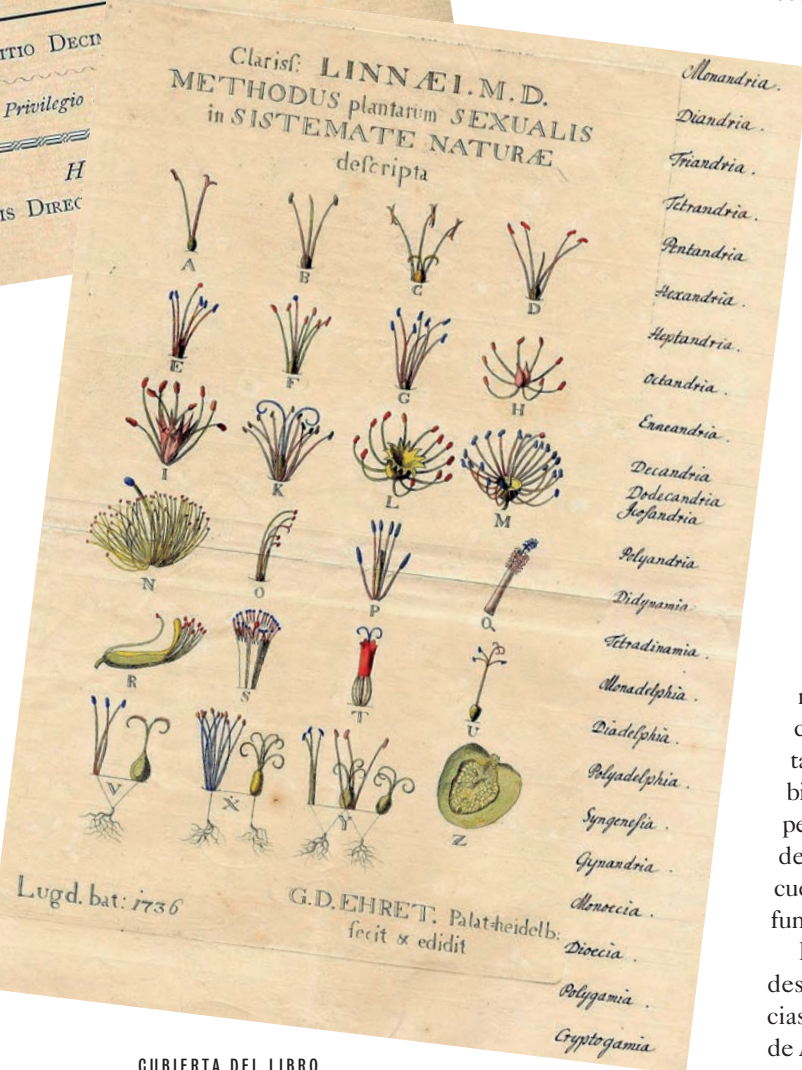 ITIO DECIM
Privilegio
H
IS DIREC
Clarisſ: LINNÆI.M.D.
METHODUS plantarum SEXUALIS
in SISTEMATE NATURÆ
deſcripta
A
B
C
D
E
F
G
H
I
K
L
M
N
O
P
Q
R
S
T
U
V
X
Y
Z
Lugd. bat: 1736
G.D.EHRET. Palat=heidelb:
fecit & edidit
Monandria.
Diandria.
Triandria.
Tetrandria.
Pentandria
Hexandria.
Heptandria.
Octandria.
Enneandria.
Decandria
Dodecandria
Jcoſandria
Polyandria
Didynamia
Tetradinamia.
Monadelphia.
Diadelphia.
Polyadelphia.
Syngeneſia.
Gynandria.
Monoecia.
Dioecia.
Polygamia.
Cryptogamia
bi
pe
de
cuo
fun
des
cias
de A
CUBIERTA DEL LIBRO